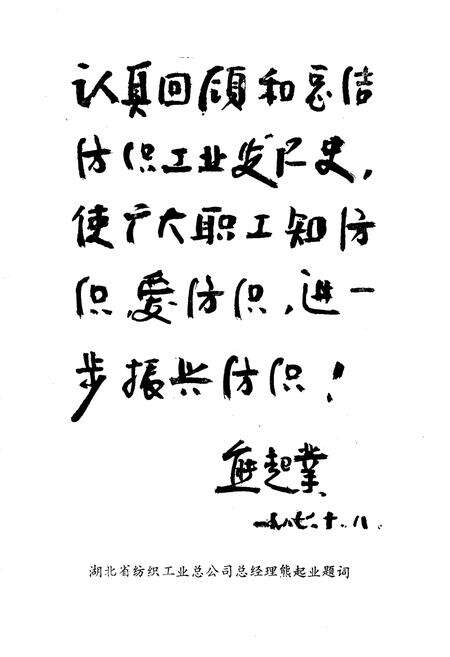 认真回顾和总结
纺织工业发展史，
使广大职工知纺
织，爱纺织，进一
步振兴纺织！
熊起業
一九八七、十、八
湖北省纺织工业总公司总经理熊起业题词